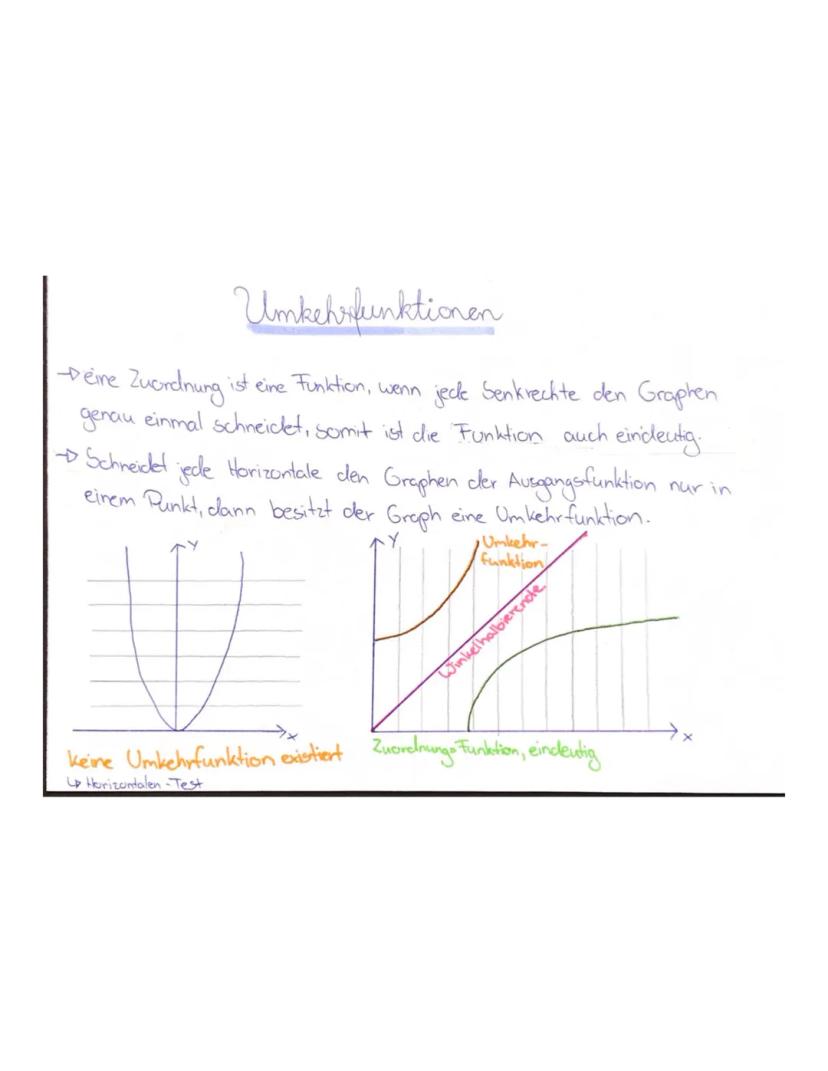 Umkehrfunktionen
→ eine Zuordnung ist eine Funktion, wenn jede Senkrechte den Graphen
genau einmal schneidet, somit ist die Funktion auch eindeutig.
→ Schneidet jede Horizontale den Graphen der Ausgangsfunktion nur in
einem Punkt, dann besitzt der Graph eine Umkehrfunktion.
Y
x
keine Umkehrfunktion existiert
↳ Horizontalen-Test
Y
Umkehr-
funktion
Winkelhalbierende
x
Zuordnung = Funktion, eindeutig